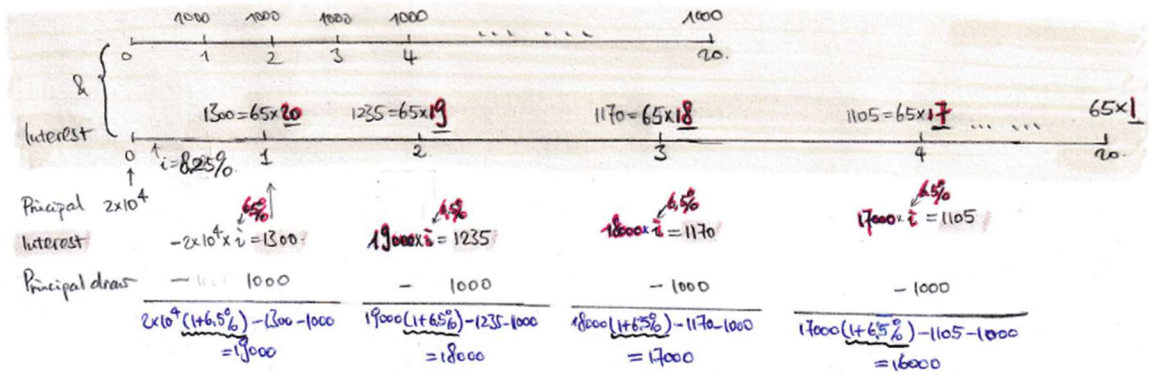 1000 1000 1000 1000 1000
0 1 2 3 4 ... ... 20.
&
1300=65×20 1235=65×19 1170=65×18 1105=65×17 ... ... 65×1
Interest
0 ↑ i=8.25% 1 2 3 4 20.
Principal 2×10⁴
6.5% 6.5% 6.5% 6.5%
Interest -2×10⁴× i =1300. 19000×i = 1235 18000×i =1170 17000× i = 1105
Principal draw - 1000 - 1000 - 1000 - 1000
2×10⁴(1+6.5%)-1300-1000 19000(1+6.5%)-1235-1000 18000(1+6.5%)-1170-1000 17000(1+6.5%)-1105-1000
=19000 =18000 =17000 =16000